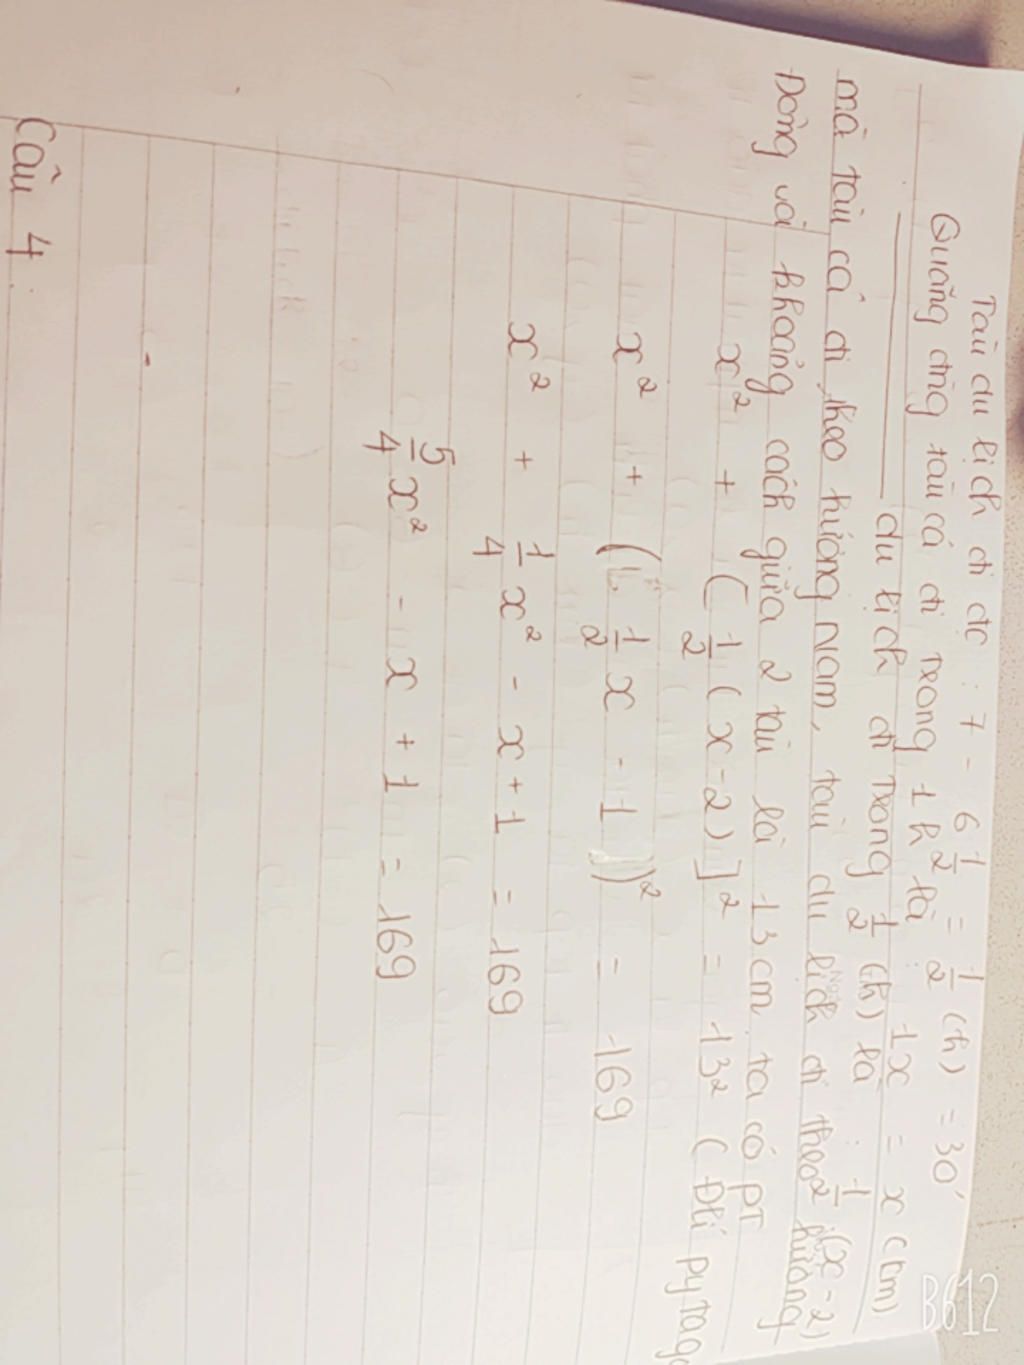 Tàu du lịch đi đc : 7 - 6 1/2 = 1/2 (h) = 30'
Quãng đừng tàu cá đi trong 1h là : 1x = x (cm)
du lịch đi trong 1/2 (h) là : 1/2 .(x-2)
mà tàu cá đi theo hướng Nam, tàu du lịch đi theo hướng
Đông và khoảng cách giữa 2 tàu là 13 cm ta có PT
x² + [ 1/2 ( x-2) ]² = 13² ( Đlí pytag
x² + ( 1/2 x - 1 )² = 169
x² + 1/4 x² - x + 1 = 169
5/4 x² - x + 1 = 169
Câu 4.
B612